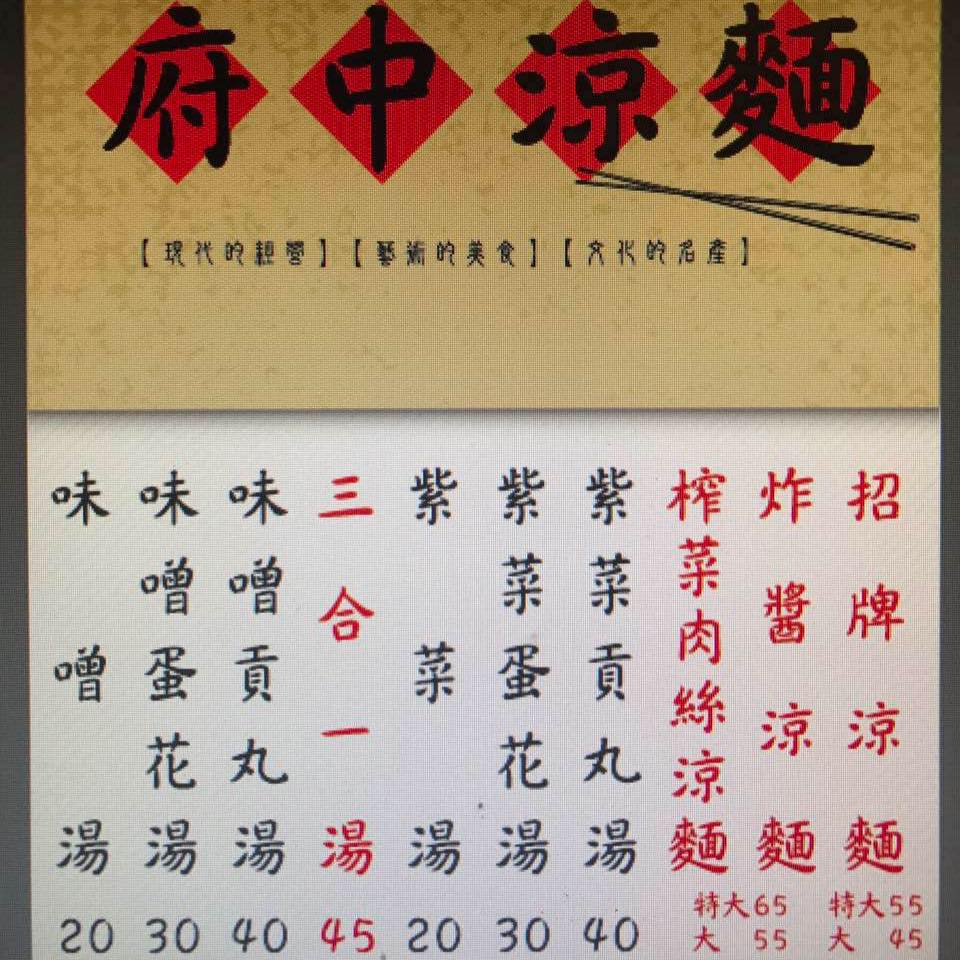 府中涼麵
【現代的經營】【藝術的美食】【文化的名產】
招牌涼麵
特大55
大 45
炸醬涼麵
榨菜肉絲涼麵
特大65
大 55
紫菜貢丸湯
40
紫菜蛋花湯
30
紫菜湯
20
三合一湯
45
味噌貢丸湯
40
味噌蛋花湯
30
味噌湯
20